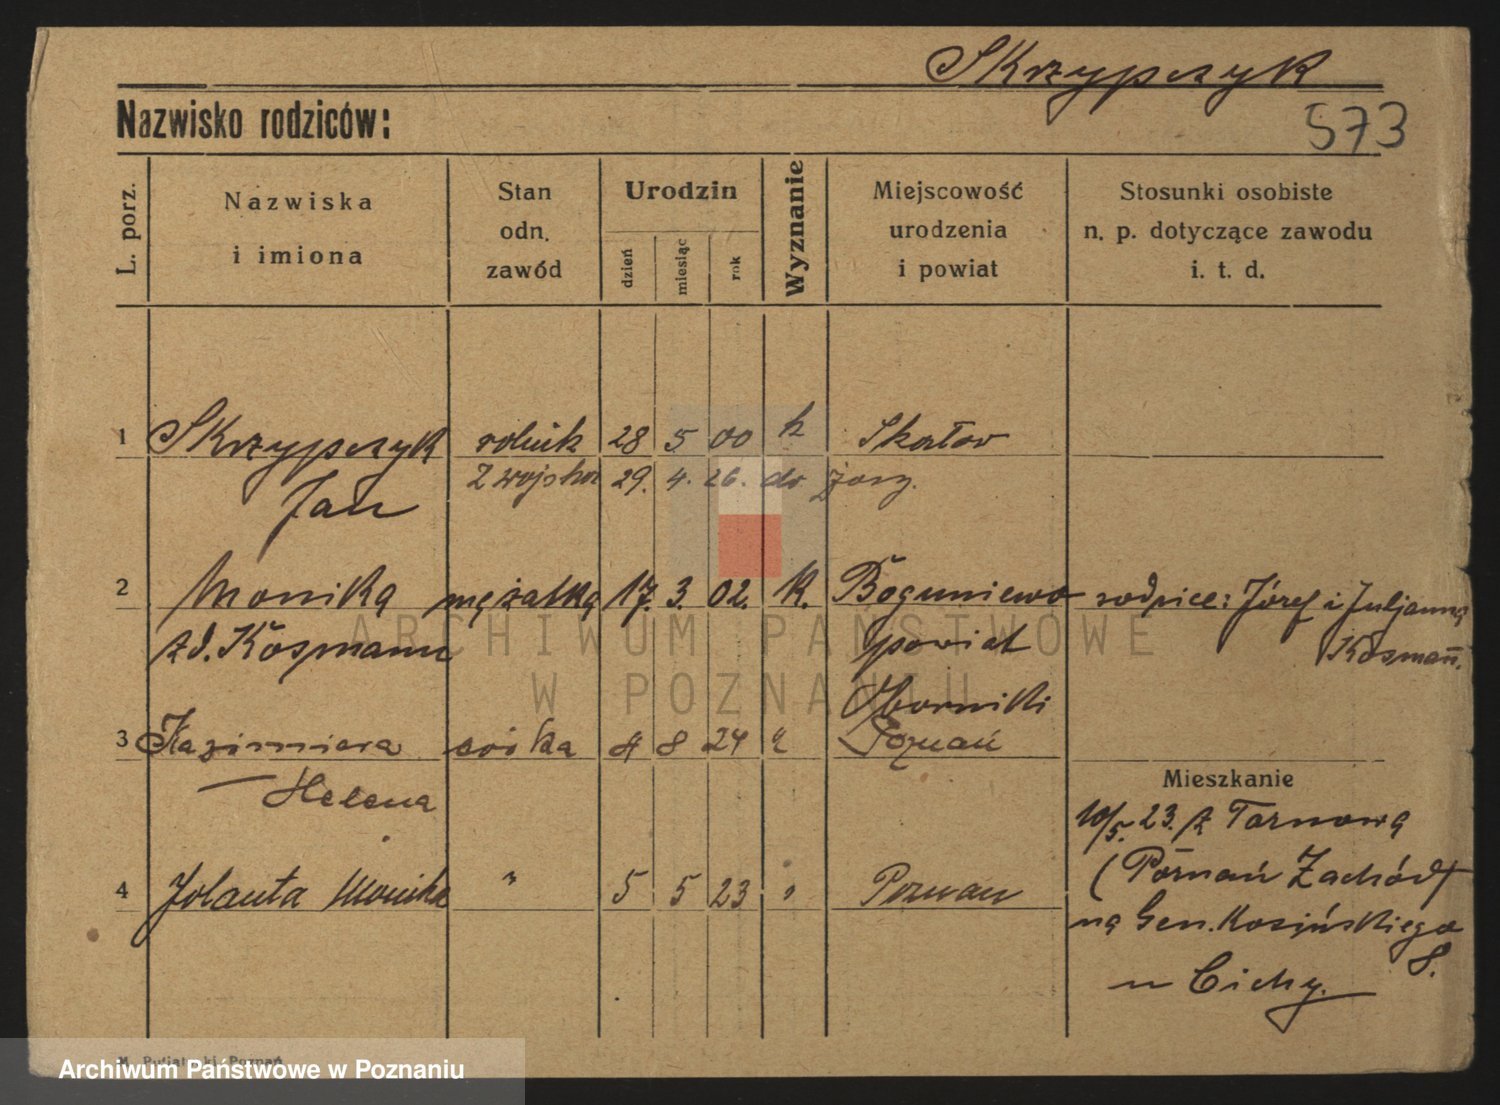 Skrzypczyk
Nazwisko rodziców:
573
L. porz.
Nazwiska
i imiona
Stan
odn.
zawód
Urodzin
dzień
miesiąc
rok
Wyznanie
Miejscowość
urodzenia
i powiat
Stosunki osobiste
n. p. dotyczące zawodu
i. t. d.
1 Skrzypczyk rolnik 28 5 00 k
Z wojska 29. 4. 26. do
Jan
2 Monika mężatka 17. 3. 02. k. Boguniewo rodzice: Józef i Juljanna
zd. Kosmann powiat Kosmann.
Oborniki
3 Kazimiera córka 4 8 24 Poznań
Helena
Mieszkanie
10/5. 23. z Tarnowa
4 Jolanta Monika " 5 5 23 " Poznań (Poznań Zachód)
na Gen. Kosińskiego
8.
u Cichy.
M. Putiatycki, Poznań
ARCHIWUM PAŃSTWOWE
W POZNANIU
Archiwum Państwowe w Poznaniu